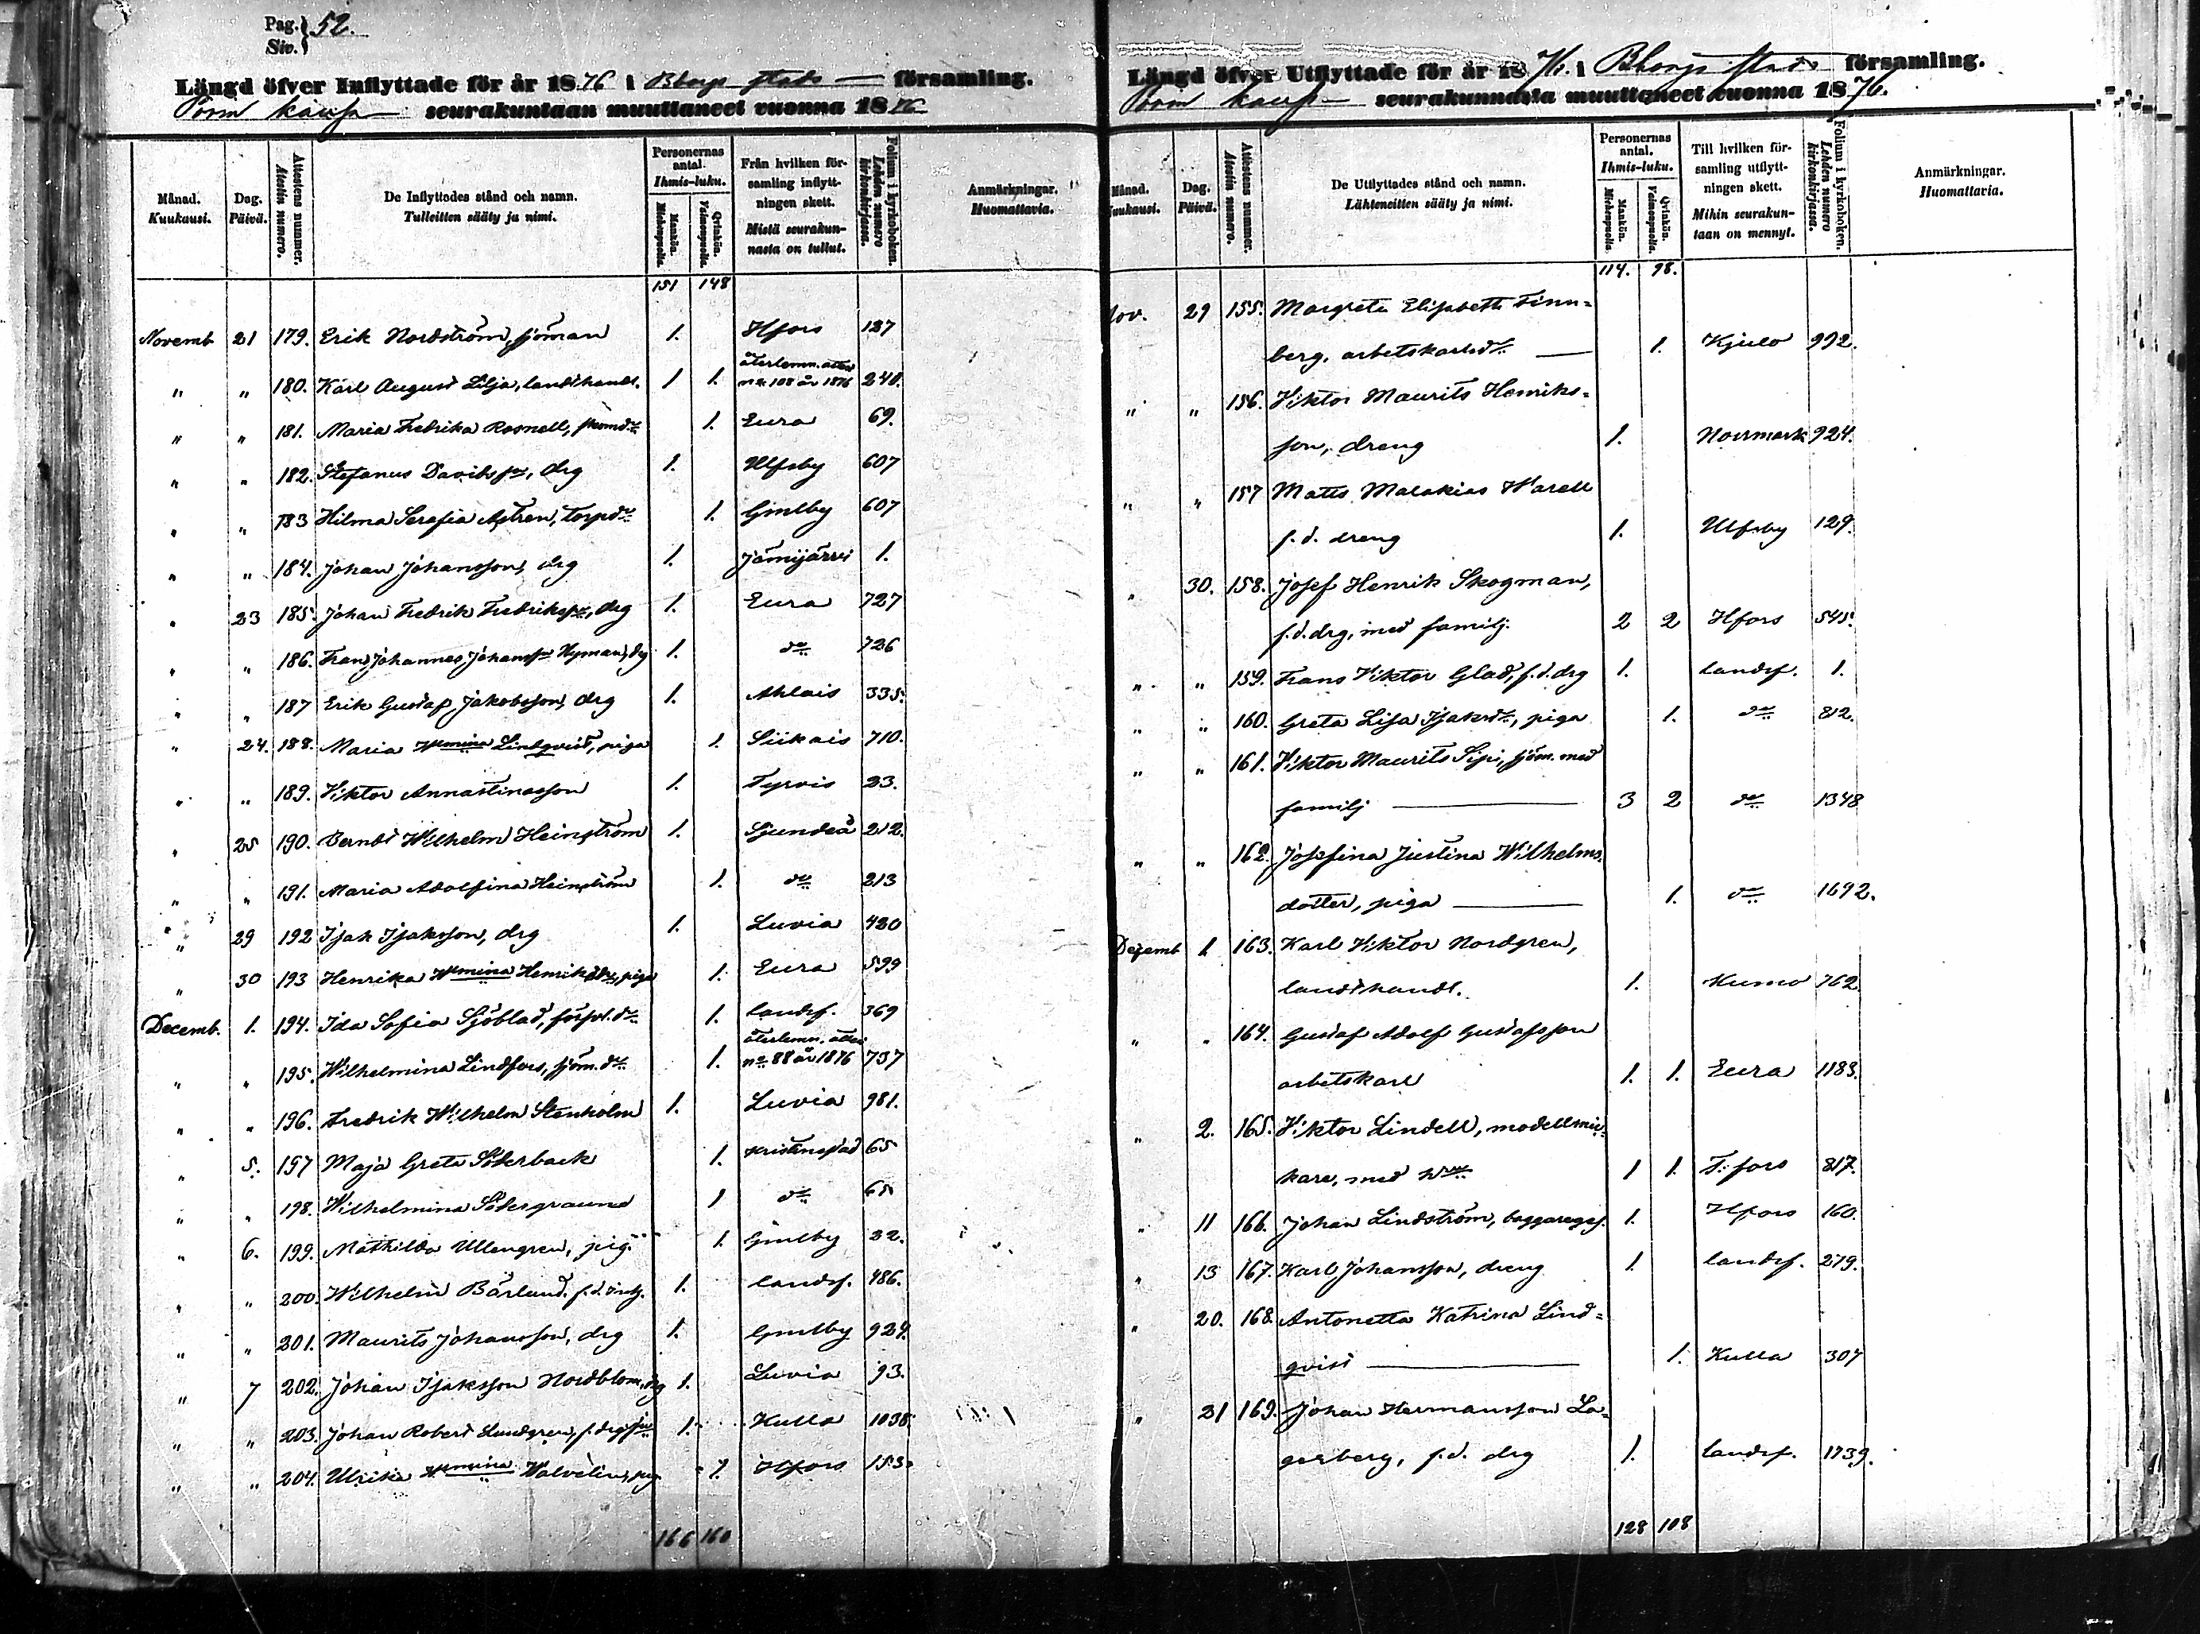 Pag. 52.
Siv.
Längd öfver Inflyttade för år 1876 i Bborgs stads församling.
Porin kaup seurakuntaan muuttaneet vuonna 1876
Månad. Kuukausi. Dag. Päivä. Attestens nummer. Atestin numero. De Inflyttades stånd och namn. Tulleitten sääty ja nimi. Personernas antal. Ihmis-luku. Mankön. Miehenpuolia. Qvinkön. Vaimonpuolia. Från hvilken församling inflyttningen skett. Mistä seurakunnasta on tullut. Folium i kyrkoboken. Lehden numero kirkonkirjassa. Anmärkningar. Huomattavia.
151 148
Novemb 21 179. Erik Nordström, sjöman 1. Hfors 127
" " 180. Karl August Lilja, landthandl. 1 1. återlemn. attest no 108 år 1876 240.
" " 181. Maria Fredrika Rosnell, 1. Eura 69.
" " 182. Stefanus Davidsson, drg 1. Ulfsby 607
" " 183 Hilma Serafia Aström, torpdr 1. Gmlby 607
" " 184. Johan Johansson, drg 1. Jämijärvi 1.
" 23 185. Johan Fredrik Fredriksson, drg 1. Eura 727
" " 186. Frans Johannes Johansson Nyman, drg 1. do 726
" " 187 Erik Gustaf Jakobsson, drg 1. Ahlais 335.
" 24. 188. Maria Wmina Lindqvist, piga 1. Siikais 710.
" " 189. Viktor Annastinasson 1. Tyrvis 23.
" 25 190. Berndt Wilhelm Heinström 1. Sjundeå 212.
" " 191. Maria Adolfina Heinström 1. do 213
" 29 192 Isak Isaksson, drg 1. Luvia 420
" 30 193 Henrika Wmina Henriksdr, piga 1. Eura 599
Decemb. 1. 194. Ida Sofia Sjöblad, 1. Landsf. 369
" " 195. Wilhelmina Lindfors, sjöm.dr 1. återlemn. attest no 88 år 1876 737
" " 196. Fredrik Wilhelm Stenholm 1. Luvia 981.
" 5. 197 Maja Greta Söderback 1. Kristinestad 65
" " 198. Wilhelmina Södergraund 1 do 65
" 6. 199. Mathilda Ullengren, pig. 1. Gmlby 32.
" " 200. Wilhelm Bärlund. f.d. 1. Landsf. 486.
" " 201. Maurits Johansson, drg 1. Gmlby 924.
" 7 202. Johan Isaksson Nordblom, drg 1. Luvia 93.
" " 203. Johan Robert Lundgren, 1. Kulla 1038.
" " 204. Ulrika Wmina Walvelin, pig 1. Hfors 153.
166 160
Längd öfver Utflyttade för år 1876. i Bborgs stads församling.
Porin kaup seurakunnasta muuttaneet vuonna 1876.
Månad. Kuukausi. Dag. Päivä. Attestens nummer. Atestin numero. De Utflyttades stånd och namn. Lähteneitten sääty ja nimi. Personernas antal. Ihmis-luku. Mankön. Miehenpuolia. Qvinkön. Vaimonpuolia. Till hvilken församling utflyttningen skett. Mihin seurakuntaan on mennyt. Folium i kyrkoboken. Lehden numero kirkonkirjassa. Anmärkningar. Huomattavia.
114. 98.
Nov. 29 155. Margreta Elisabeth Finn=
berg, arbetskarlsdr 1. Kjulo 992.
" " 156. Viktor Maurits Henriks=
son, dreng 1. Norrmark 924.
" " 157 Matts Malakias Warell
f.d. dreng 1. Ulfsby 129.
" 30. 158. Josef Henrik Skogman,
f.d. drg, med familj. 2 2 Hfors 545.
" " 159. Frans Viktor Glad, f.d. drg 1. Landsf. 1.
" " 160. Greta Lisa Isaksdr, piga 1. do 812.
" " 161. Viktor Maurits Sipi, sjöm. med
familj 3 2 do 1348
" " 162. Josefina Justina Wilhelms
dotter, piga 1. do 1692.
Decemb 1 163. Karl Viktor Nordgren,
landthandl. 1. Kumo 762
" " 164. Gustaf Adolf Gustafsson
arbetskarl 1. 1. Eura 1183.
" 2. 165. Viktor Lindell, modellsnic=
kare, med hru 1 1. T:fors 817.
" 11 166. Johan Lindström, bagaregs. 1. Hfors 160.
" 13 167. Karl Johansson, dreng 1. Landsf. 279.
" 20. 168. Antonetta Katrina Lind=
qvist 1. Kulla 307
" 21 169. Johan Hermansson La=
gerberg, f.d. drg 1. Landsf. 1739.
128 108